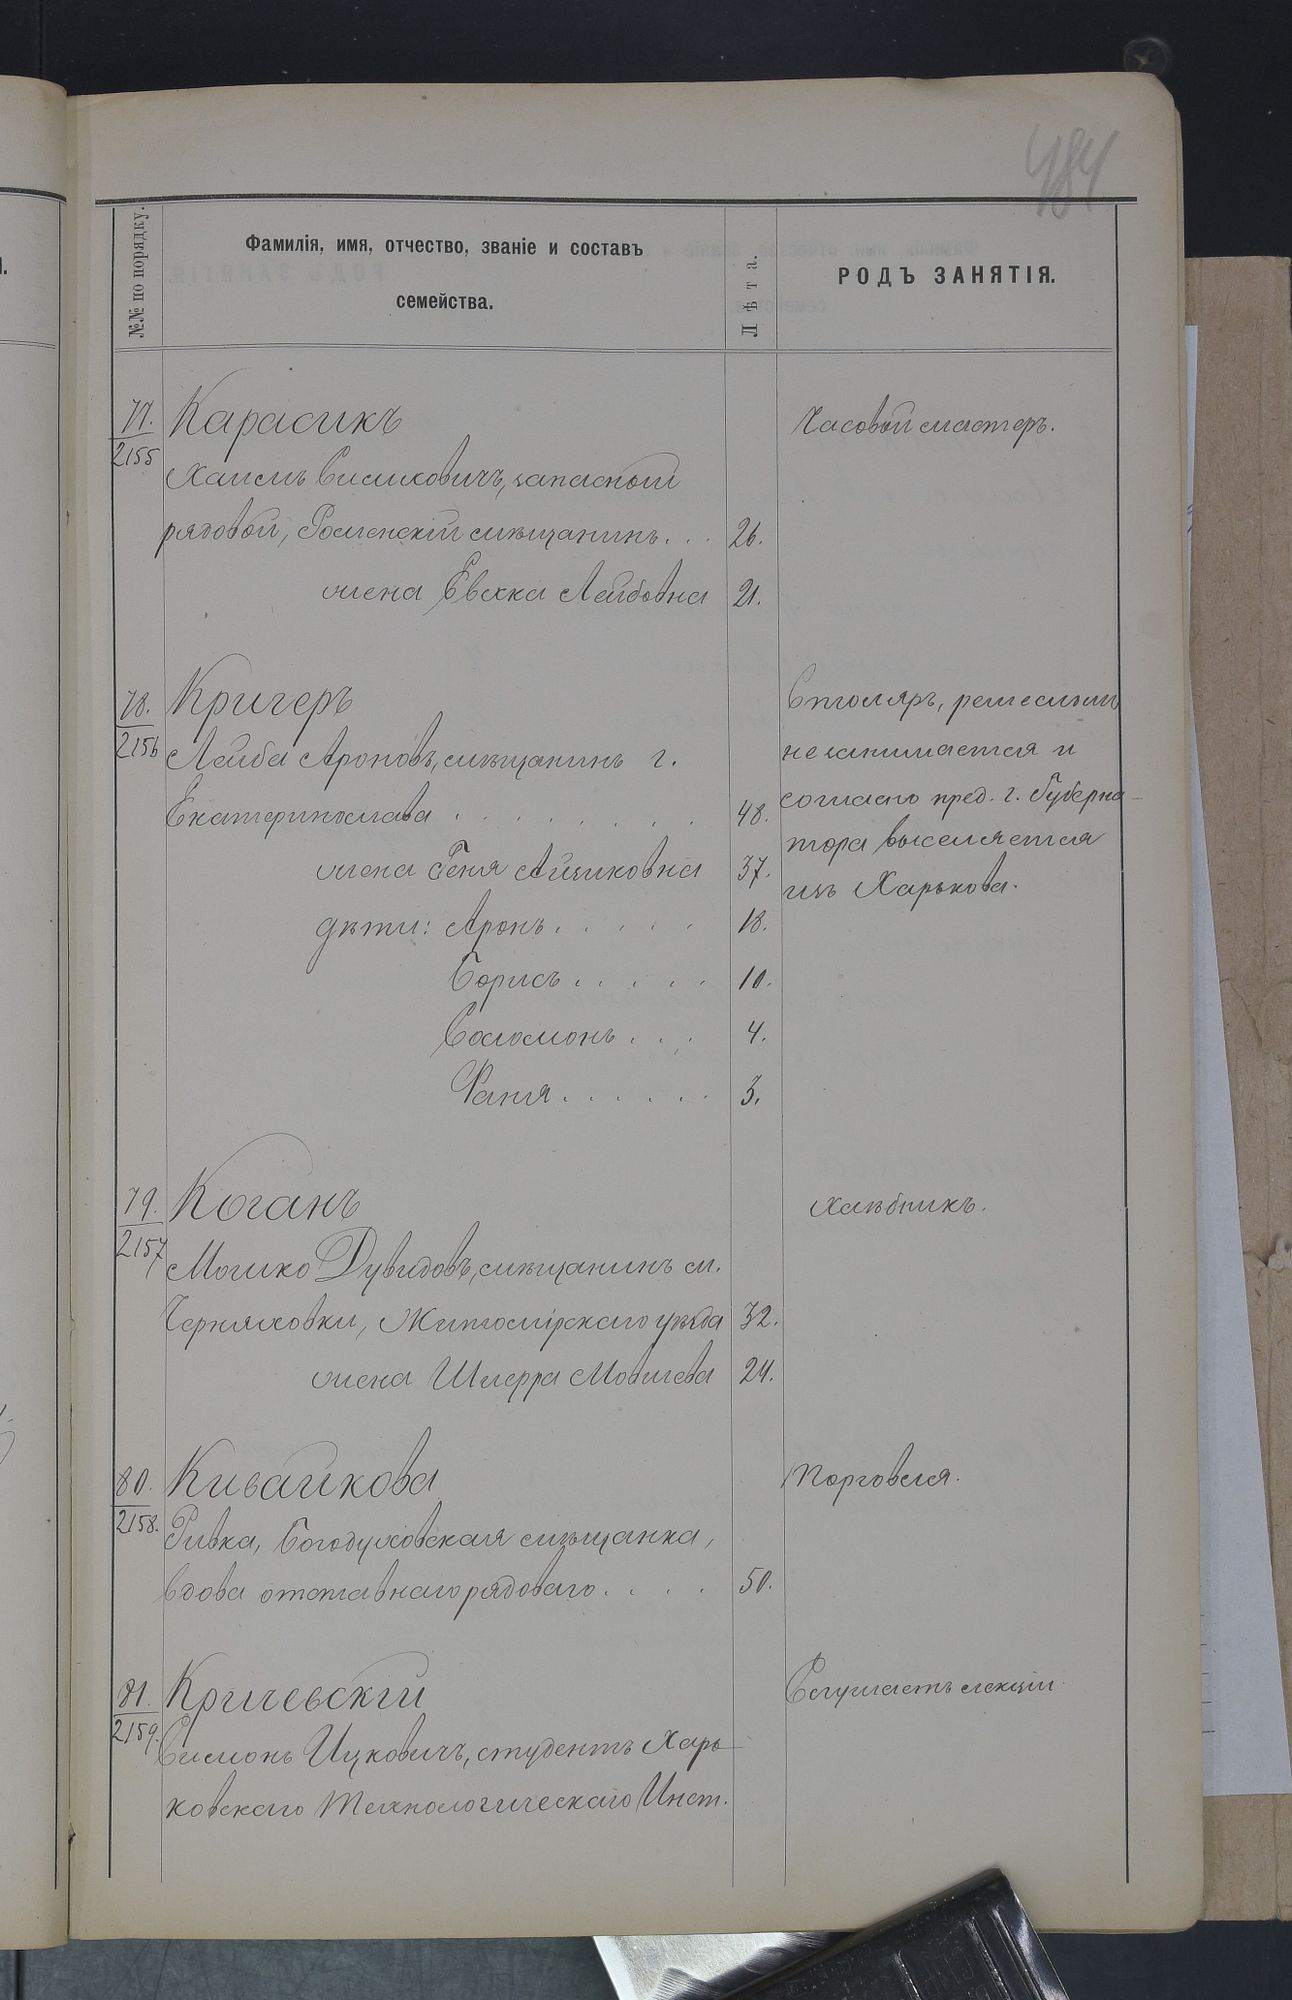 484
№№ по порядку.
Фамилія, имя, отчество, званіе и составъ
семейства.
Лѣта.
РОДЪ ЗАНЯТІЯ.
77.
2155
Карасикъ
Часовой мастеръ.
Хаимъ Симховичъ, запасной
рядовой, Росіенскій мѣщанинъ . . . 26.
жена Евхка Лейбовна 21.
78.
2156
Кригеръ
Столяръ, ремесломъ
Лейба Ароновъ, мѣщанинъ г.
не занимается и
Екатеринослава . . . . . . . . 48.
согласно пред. г. Губерна-
тора выселяется
жена Геня Айзиковна 37.
изъ Харькова.
дѣти: Аронъ . . . . . 18.
Борисъ . . . . . 10.
Соломонъ . . . 4.
Фаня . . . . . . 3.
79.
2157
Коганъ
Хлѣбникъ.
Мошко Дувидовъ, мѣщанинъ м.
Черняховки, Житомірскаго уѣзда 32.
жена Шперра Мовшева 24.
80.
2158.
Кисайкова
Торговля.
Ривка, Богодуховская мѣщанка,
вдова отставнаго рядоваго . . . . 50.
81.
2159.
Кричевскій
Слушаетъ лекціи.
Симонъ Ицковичъ, студентъ Харь-
ковскаго Технологическаго Инст.